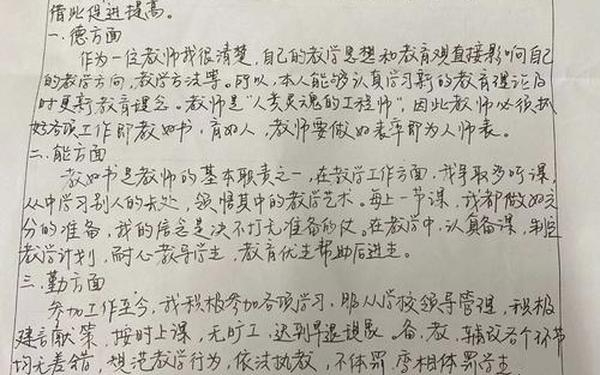 借此促进提高。
一.德方面
作为一位教师我很清楚,自己的教学思想和教育观直接影响自己
的教学方向,教学方法等。所以,本人能够认真学习新的教育理论及
时更新教育理念。教师是“人类灵魂的工程师”,因此教师必须抓
好各项工作即教好书,育好人,教师要做好表率即为人师表。
二.能方面
教好书是教师的基本职责之一,在教学工作方面,我争取多听课,
从中学习别人的长处,领悟其中的教学艺术。每上一节课,我都做好充
分的准备,我的信念是决不打无准备的仗。在教学中,认真备课,制定
教学计划,耐心教导学生,教育优生帮助后进生。
三.勤方面
参加工作至今,我积极参加各项学习,服从学校领导管理,积极
建言献策,按时上课,无旷工,迟到早退现象。备、教、辅改各个环节
均无差错,规范教学行为,依法执教,不体罚、变相体罚学生